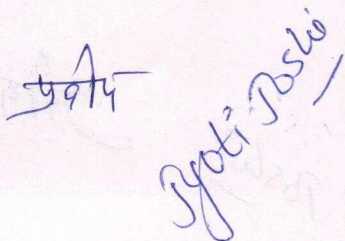 प्रवीण
Jyoti Joshi